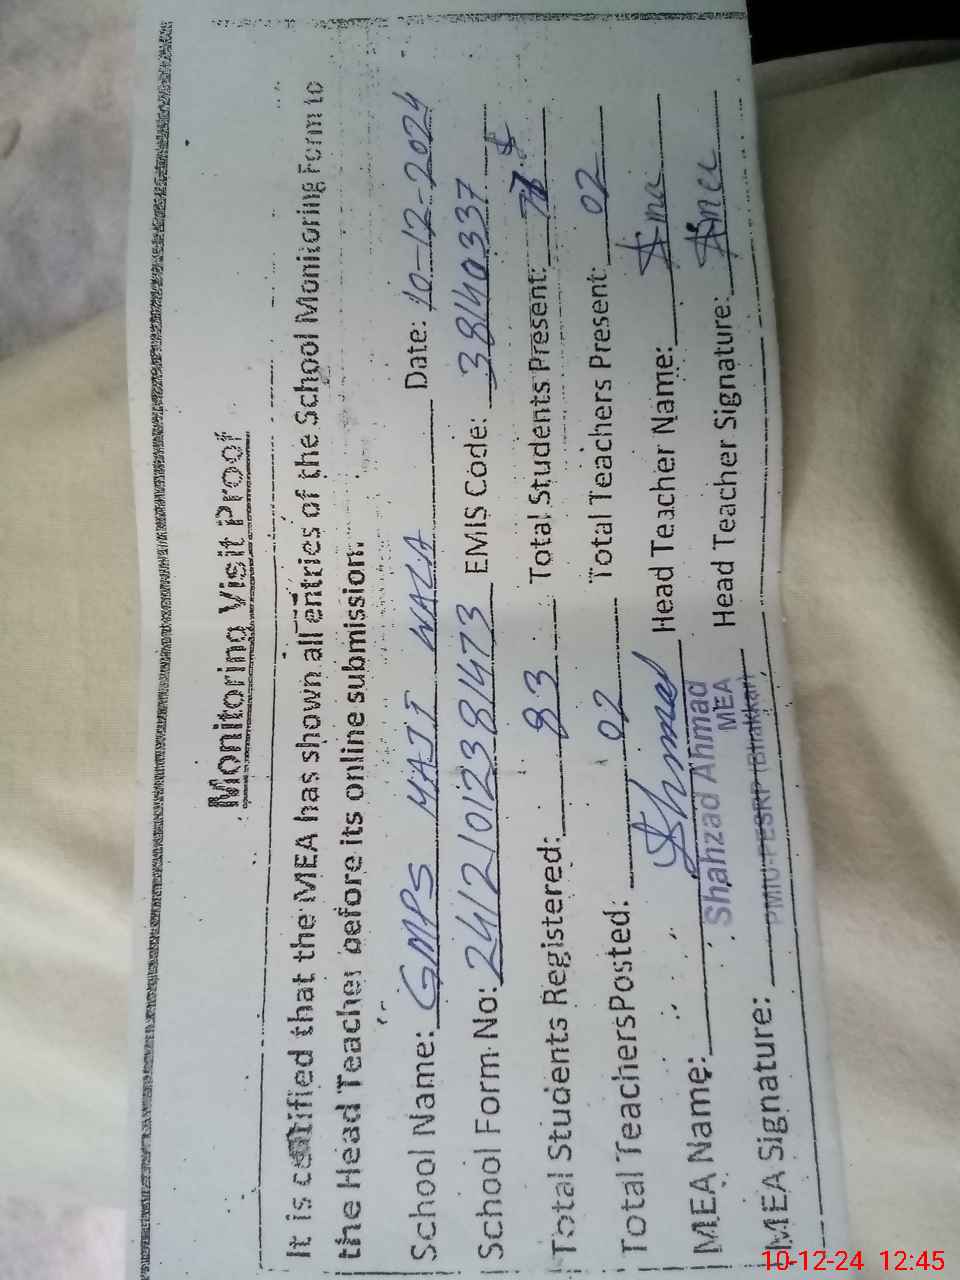 Monitoring Visit Proof
It is certified that the MEA has shown all entries of the School Monitoring Form to
the Head Teacher before its online submission.
School Name: GMPS HAJI WALA Date: 10-12-2024
School Form No: 24121012381473 EMIS Code: 38140337
Total Students Registered: 83 Total Students Present:
Total Teachers Posted: 02 Total Teachers Present: 02
MEA Name: Head Teacher Name:
Shahzad Ahmad
MEA
PMIU-PESRP (Bhakkar)
MEA Signature: Head Teacher Signature:
10-12-24 12:45